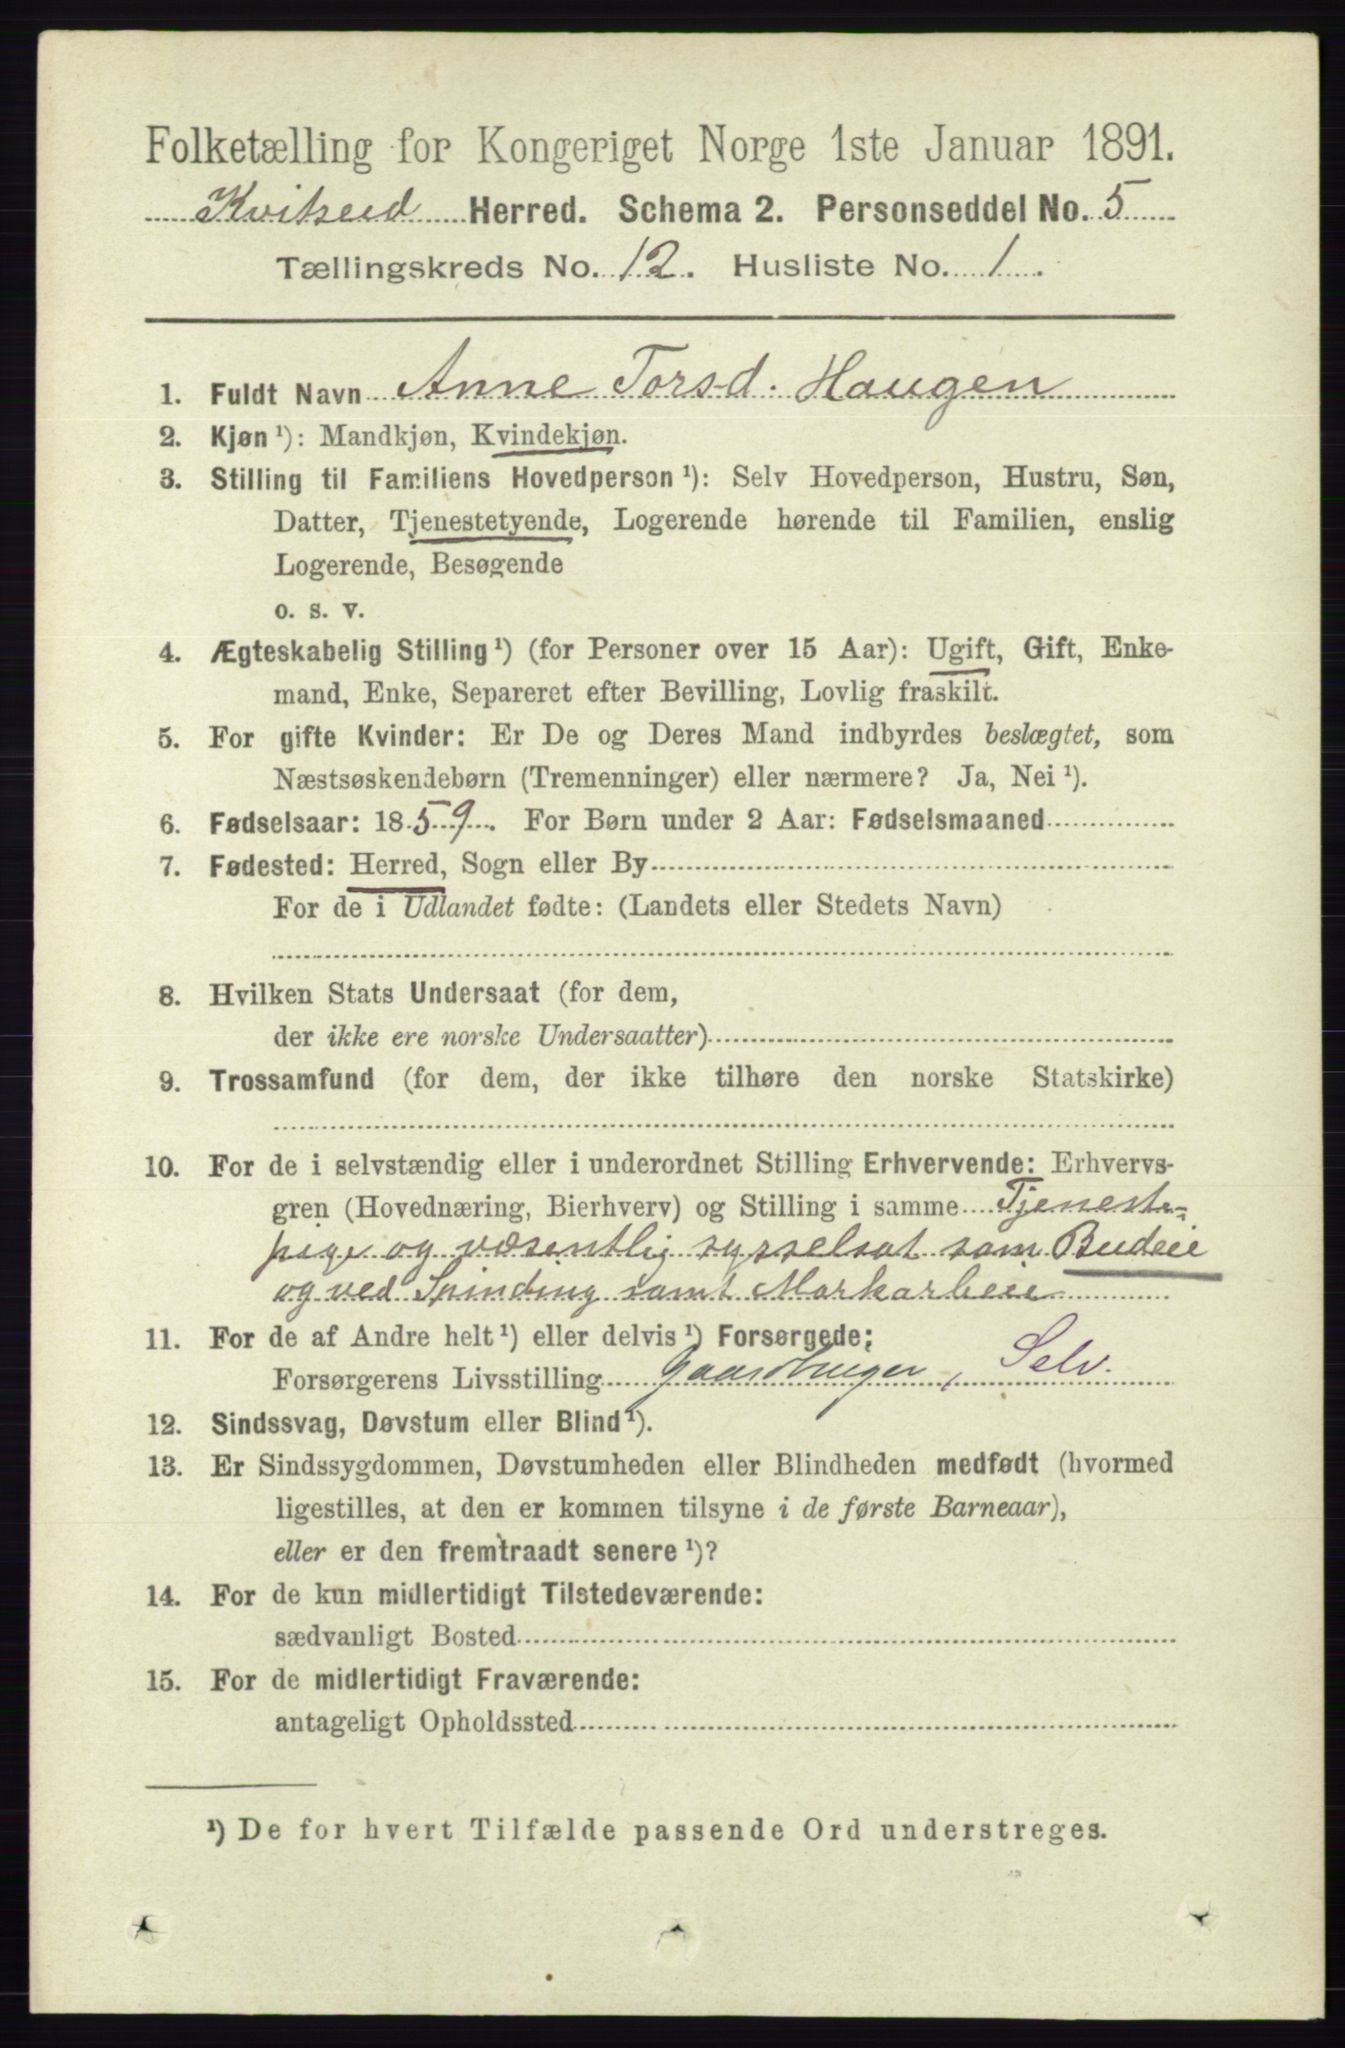 Folketælling for Kongeriget Norge 1ste Januar 1891.
Kvitseid Herred. Schema 2. Personseddel No. 5
Tællingskreds No. 12. Husliste No. 1.
1. Fuldt Navn Anne Torsd. Haugen
2. Kjøn ¹): Mandkjøn, Kvindekjøn.
3. Stilling til Familiens Hovedperson ¹): Selv Hovedperson, Hustru, Søn,
Datter, Tjenestetyende, Logerende hørende til Familien, enslig
Logerende, Besøgende
o. s. v.
4. Ægteskabelig Stilling ¹) (for Personer over 15 Aar): Ugift, Gift, Enke-
mand, Enke, Separeret efter Bevilling, Lovlig fraskilt.
5. For gifte Kvinder: Er De og Deres Mand indbyrdes beslægtet, som
Næstsøskendebørn (Tremenninger) eller nærmere? Ja, Nei ¹).
6. Fødselsaar: 1859. For Børn under 2 Aar: Fødselsmaaned
7. Fødested: Herred, Sogn eller By
For de i Udlandet fødte: (Landets eller Stedets Navn)
8. Hvilken Stats Undersaat (for dem,
der ikke ere norske Undersaatter)
9. Trossamfund (for dem, der ikke tilhøre den norske Statskirke)
10. For de i selvstændig eller i underordnet Stilling Erhvervende: Erhvervs-
gren (Hovednæring, Bierhverv) og Stilling i samme Tjeneste-
pige og væsentlig sysselsat som Budeie
og ved Spinding samt Markarbeie
11. For de af Andre helt ¹) eller delvis ¹) Forsørgede;
Forsørgerens Livsstilling Gaardbruger, Selv.
12. Sindssvag, Døvstum eller Blind ¹).
13. Er Sindssygdommen, Døvstumheden eller Blindheden medfødt (hvormed
ligestilles, at den er kommen tilsyne i de første Barneaar),
eller er den fremtraadt senere ¹)?
14. For de kun midlertidigt Tilstedeværende:
sædvanligt Bosted
15. For de midlertidigt Fraværende:
antageligt Opholdssted
¹) De for hvert Tilfælde passende Ord understreges.